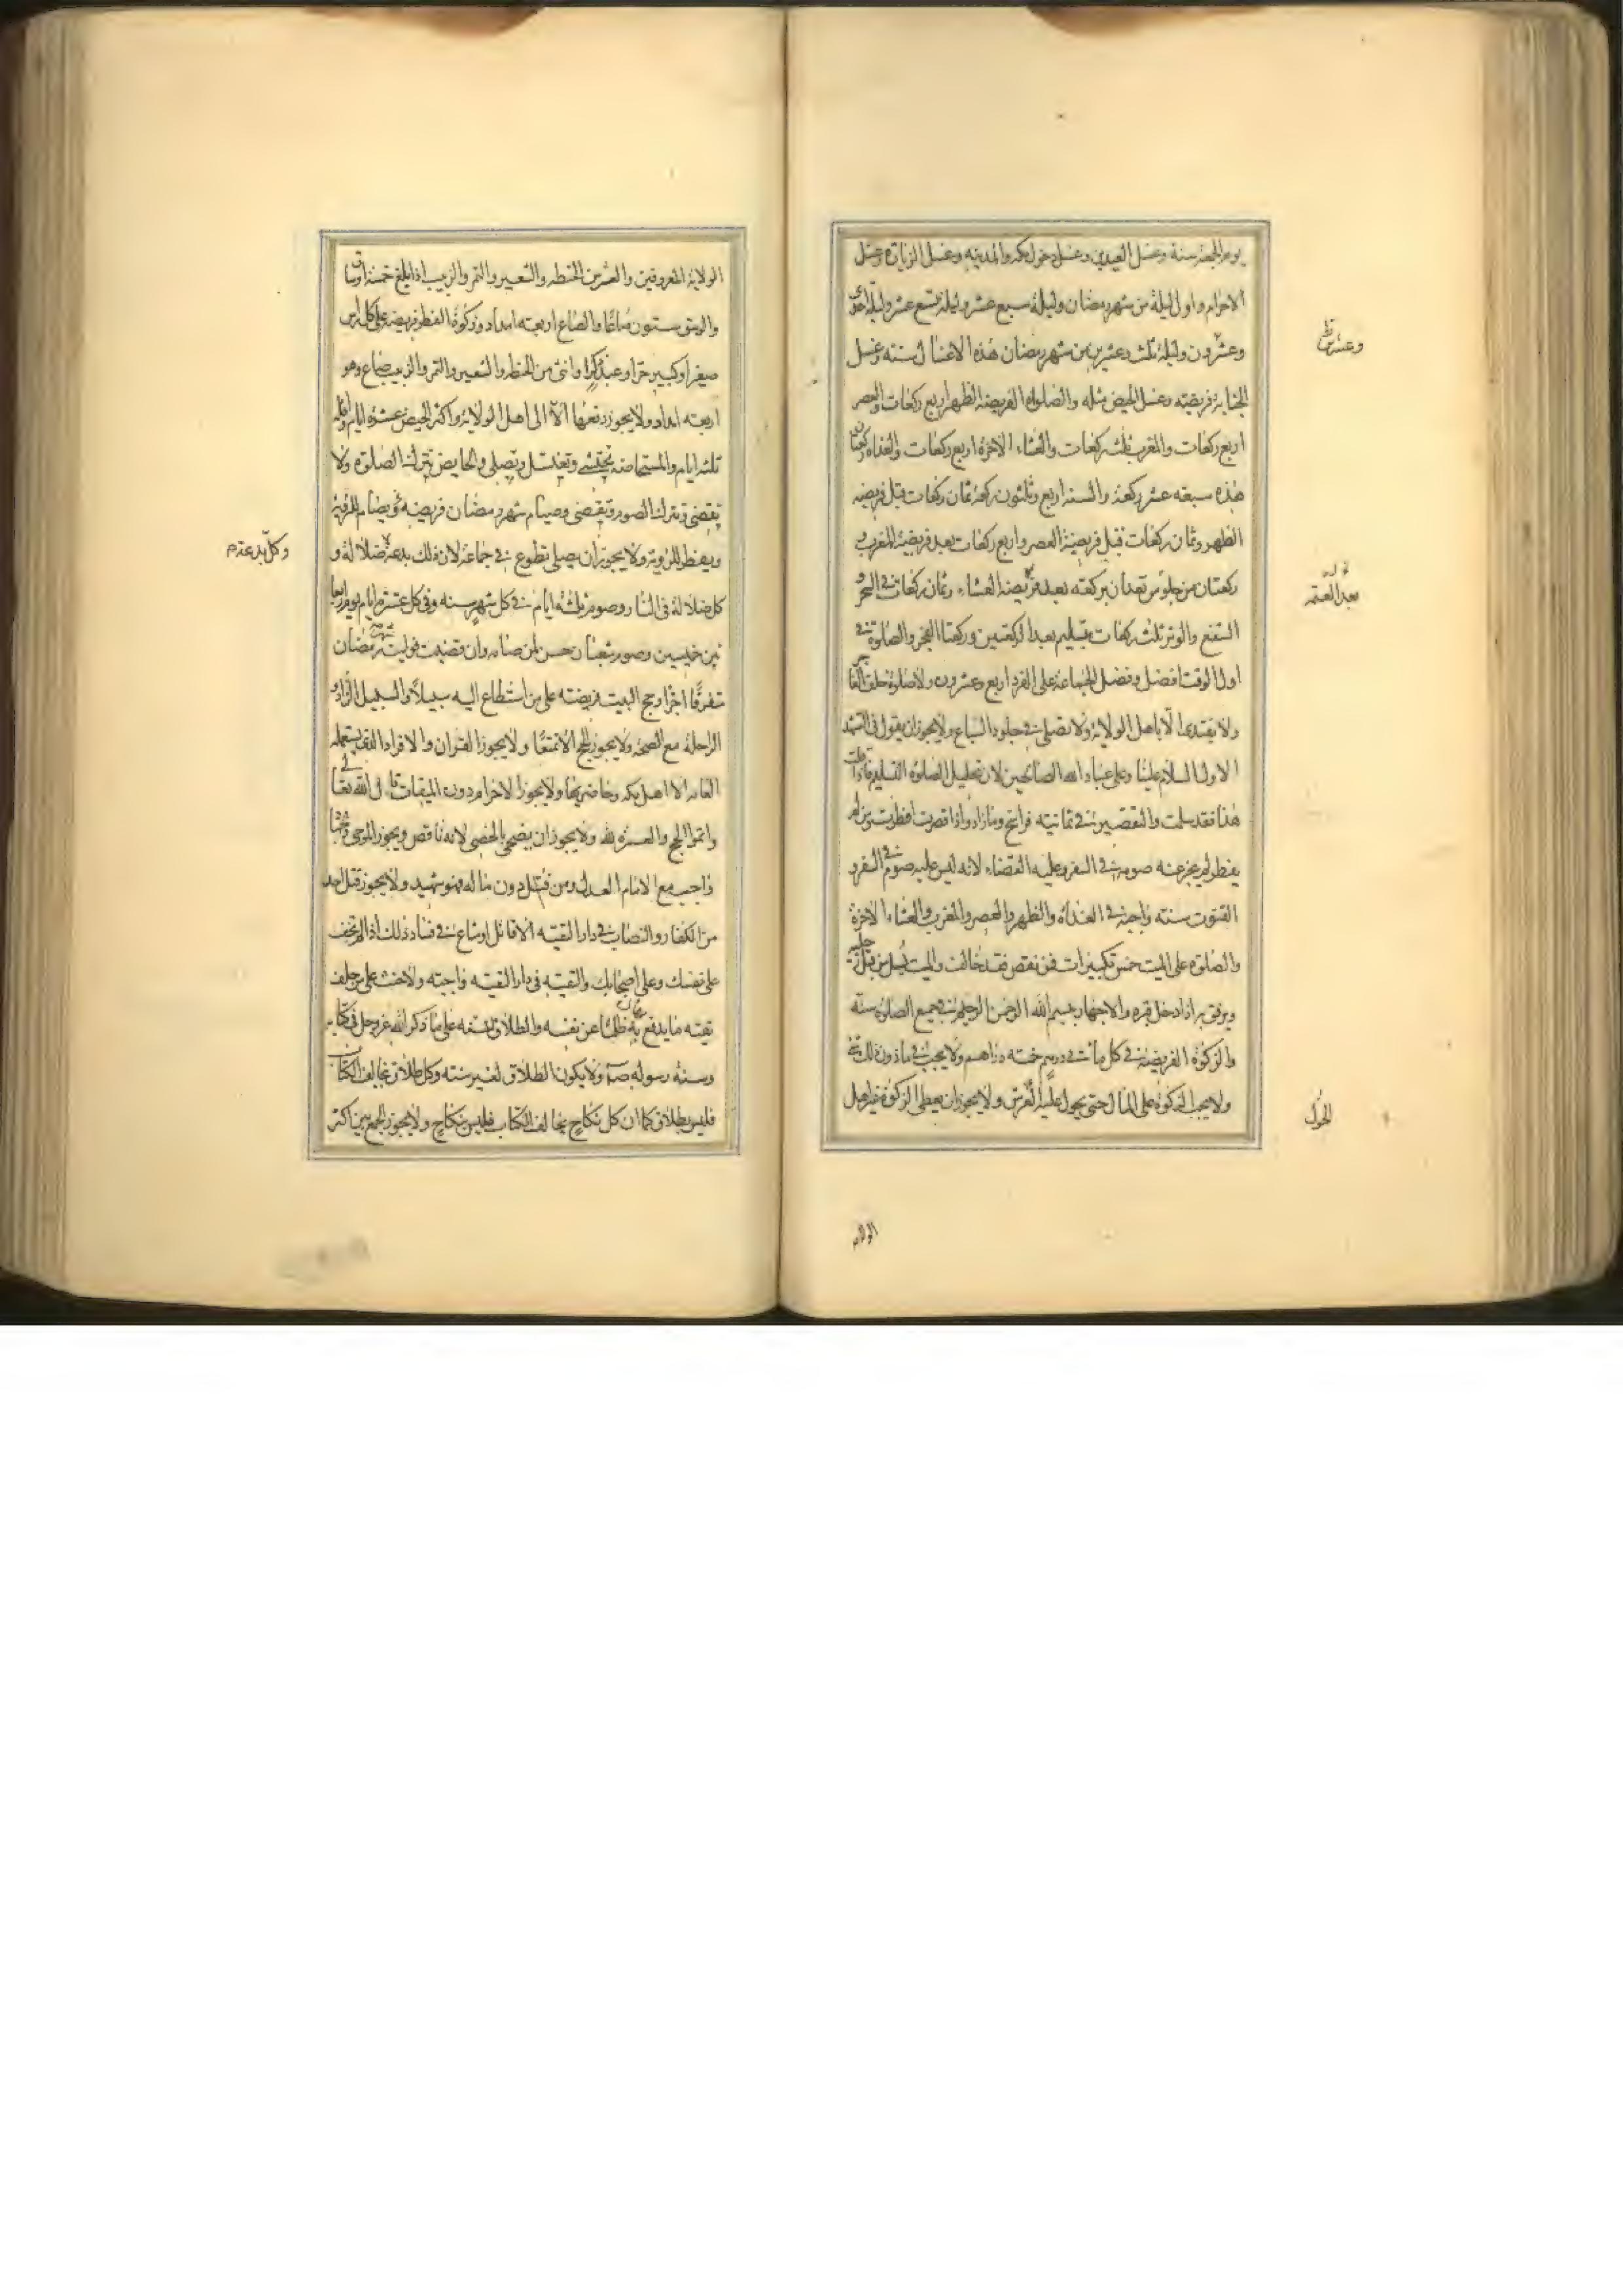 يوم الجمعة سنة وغسل العيدين وغسل دخول مكه والمدينه وغسل الزيارة وغسل
الاحرام واول ليلة من شهر رمضان وليلة سبع عشر وليلة تسع عشر وليلة احدى
وعشرون وليلة ثلث وعشرين من شهر رمضان هذه الاغسال سنته وغسل
وعشرين
الجنابة فريضته وغسل الحيض مثله والصلواة الفريضة الظهر اربع ركعات والعصر
اربع ركعات والمغرب ثلث ركعات والعشاء الاخرة اربع ركعات والغداة ركعتان
هذه سبعه عشر ركعة والسنة اربع وثلثون ركعة ثمان ركعات قبل فريضه
الظهر وثمان ركعات قبل فريضة العصر واربع ركعات بعد فريضة المغرب و
ركعتان من جلوس تعدان بركعته بعد فريضة العشاء وثمان ركعات في السحر و
بعد العتمه
الشفع والوتر ثلث ركعات يسلم بعد الركعتين وركعتا الفجر والصلوة في
اول الوقت افضل وفضل الجماعة على الفرد اربع وعشرون ولا صلوة خلف الفاجر
ولا يقتدى الا باهل الولاية ولا تصلى في جلود السباع ولا يجوز ان يقول في التشهد
الاول السلام علينا وعلى عباد الله الصالحين لان تحليل الصلوة التسليم فاذا قلت
هذا فقد سلمت والتقصير في ثمانيه فراسخ وما زاد واذا قصرت افطرت من لم
يفطر لم يجز عنه صومه في السفر وعليه القضاء لانه ليس عليه صوم في السفر و
القنوت سنته واجبة في الغداة والظهر والعصر والمغرب والعشاء الاخرة
والصلوة على الميت خمس تكبيرات فمن نقص فقد خالف والميت يسل من قبل رجليه
ويرفق به اذا دخل قبره والاجهار ببسم الله الرحمن الرحيم في جميع الصلوة سنة
والزكوة الفريضة في كل مأتي درهم خمسه دراهم ولا يجب في ما دون ذلك شئ
ولا يجب الزكوة على المال حتى يحول عليه ولا يجوز ان يعطى الزكوة غير اهل
الحول
الولاية
الولاية المعروفين والعشر من الحنطه والشعير والتمر والزبيب اذا بلغ خمسة اوساق
والوسق ستون صاعا والصاع اربعته امداد وزكوة الفطر فريضه على كل راس
صغير او كبير حر او عبد ذكر او انثى من الحنطه والشعير والتمر والزبيب صاع وهو
اربعته امداد ولا يجوز دفعها الا الى اهل الولاية واكثر الحيض عشرة ايام واقله
ثلثة ايام والمستحاضة تحتشى وتغتسل وتصلى والحايض تترك الصلوة ولا
تقضى وتترك الصوم وتقضى وصيام شهر رمضان فريضه يصام للرؤية
ويفطر للرؤية ولا يجوز ان يصلى تطوع في جماعة لان ذلك بدعة ضلالة و
وكل بدعة
كل ضلالة في النار وصوم ثلثة ايام في كل شهر سنه وفي كل عشرة ايام يوم اربعا
بين خميسين وصوم شعبان حسن لمن صامه وان قضيت فوائت شهر رمضان
متفرقا اجزا وحج البيت فريضته على من استطاع اليه سبيلا والسبيل الزاد و
الراحلة مع الصحة ولا يجوز الحج الا تمتعا ولا يجوز القران والافراد الذي يستعمله
العامه الا اهل مكه وحاضريها ولا يجوز الاحرام دون الميقات قال الله تعالى
واتموا الحج والعمرة لله ولا يجوز ان يضحى بالخصى لانه ناقص ويجوز الموجى والجهاد
واجب مع الامام العدل ومن قتل دون ماله فهو شهيد ولا يجوز قتل احد
من الكفار والنصاب في دار التقيه الا قاتل او ساع في فساد ذلك اذا لم تخف
على نفسك وعلى اصحابك والتقيه في دار التقيه واجبته ولا حنث على من حلف
تقيته ما يدفع به ظلما عن نفسه والطلاق للسنة على ما ذكر الله عز وجل في كتابه
وسنة رسوله ولا يكون الطلاق لغير سنته وكل طلاق يخالف الكتاب
فليس بطلاق كما ان كل نكاح يخالف الكتاب فليس بنكاح ولا يجوز الجمع بين اكثر